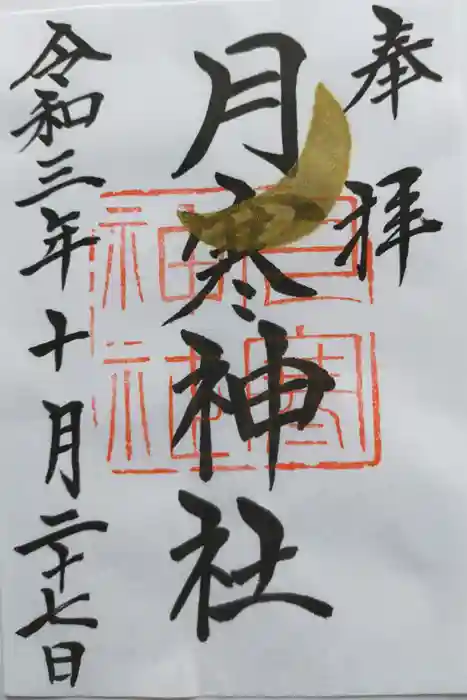 奉拝
月寒神社
令和三年十月二十七日
月寒
神社